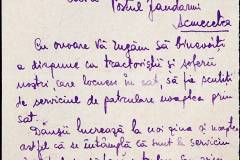 Postul Jandarmi
Sumectea
Cu onoare Vă rugăm să binevoiți
a dispune ca tractoriștii și șoferii
noștri, care locuesc în sat, să fie scutiți
de serviciul de patrulare noaptea prin
sat.
Dânșii lucrează la noi ziua și noaptea
astfel că se întâmplă că sunt la serviciu